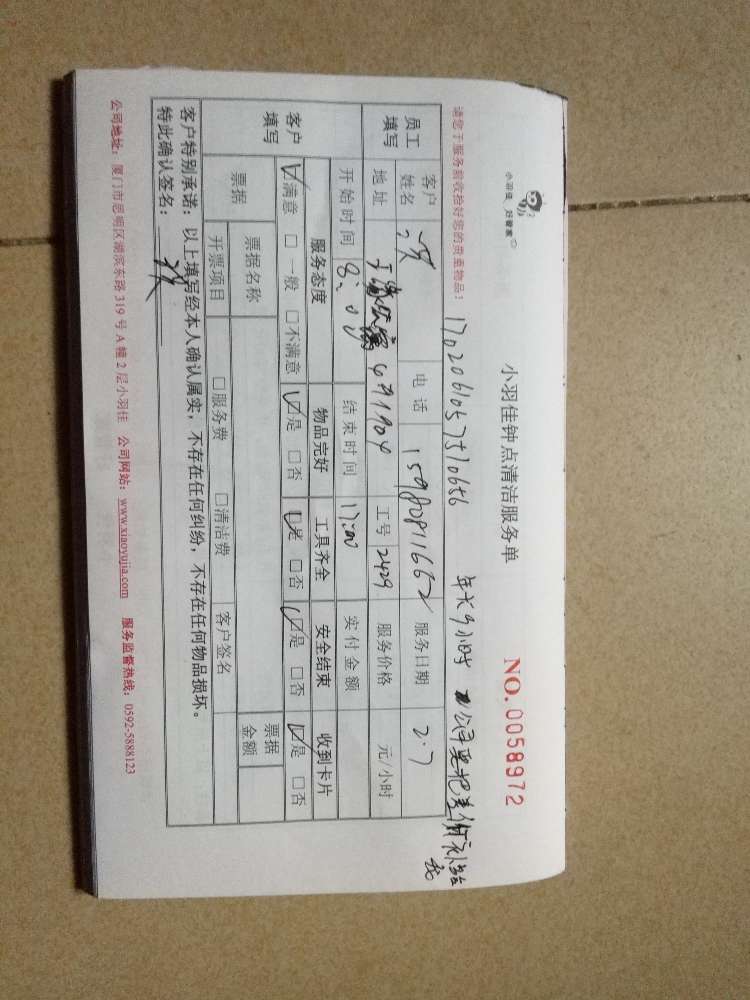 小羽佳 好管家
小羽佳钟点清洁服务单 NO. 0058972
请您于服务前收拾好您的贵重物品! 17020610575710656 年长9小时 公司要把差价补给我
员工填写 客户姓名 电话 15980811662 服务日期 2.7
地址 4#1904 工号 2429 服务价格 元/小时
开始时间 8:00 结束时间 17:00 实付金额
客户填写 服务态度 物品完好 工具齐全 安全结束 收到卡片
☑满意 □一般 □不满意 ☑是 □否 ☑是 □否 ☑是 □否 ☑是 □否
票据 票据名称 票据金额
开票项目 □服务费 □清洁费 客户签名
客户特别承诺:以上填写经本人确认属实,不存在任何纠纷,不存在任何物品损坏。
特此确认签名:
公司地址:厦门市思明区湖滨东路319号A幢2层小羽佳 公司网站:www.xiaoyujia.com 服务监督热线:0592-5888123